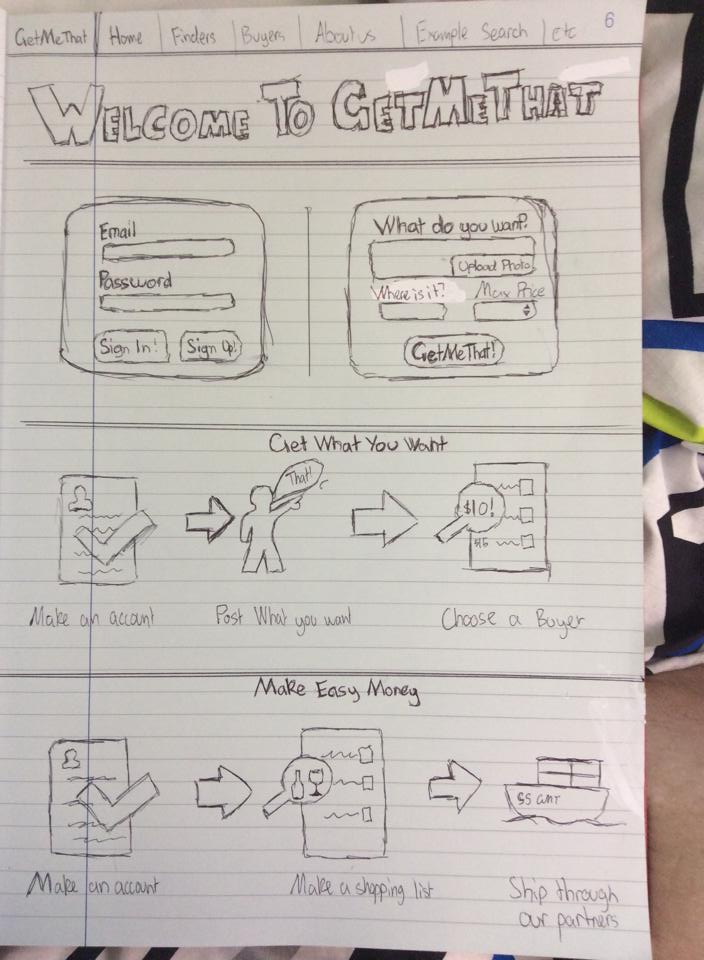 6
GetMeThat Home Finders Buyers About us Example Search etc
WELCOME TO GETMETHAT
Email
Password
Sign In! Sign Up!
What do you want?
Upload Photo
Where is it? Max Price
GetMeThat!
Get What You Want
That!
$10!
$15
Make an account Post What you want Choose a Buyer
Make Easy Money
Make an account Make a shopping list Ship through
our partners